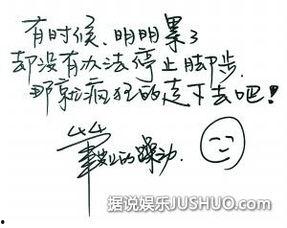 有时候、明明累了
却没有办法停止脚步.
那就疯狂的走下去吧!
的躁动.
据说娱乐JUSHUO.com